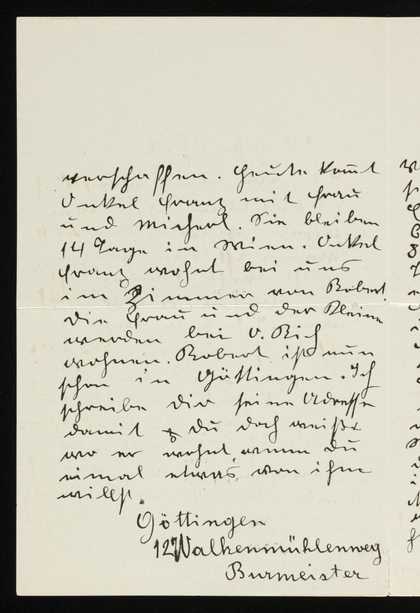 verschaffen. Heute kommt
Onkel Franz mit Frau
und Micherl. Sie bleiben
14 Tage in Wien. Onkel
Franz wohnt bei uns
im Zimmer von Robert.
Die Frau und der Kleine
werden bei O. Rich
wohnen. Robert ist nun
schon in Göttingen. Ich
schreibe dir seine Adresse
damit du doch weißt
wo er wohnt, wenn du
einmal etwas von ihm
willst.
Göttingen
12 Walkenmühlenweg
Burmeister